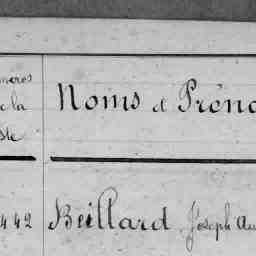 méros
e la
ste
Noms et Préno
442 Beillard Joseph Au